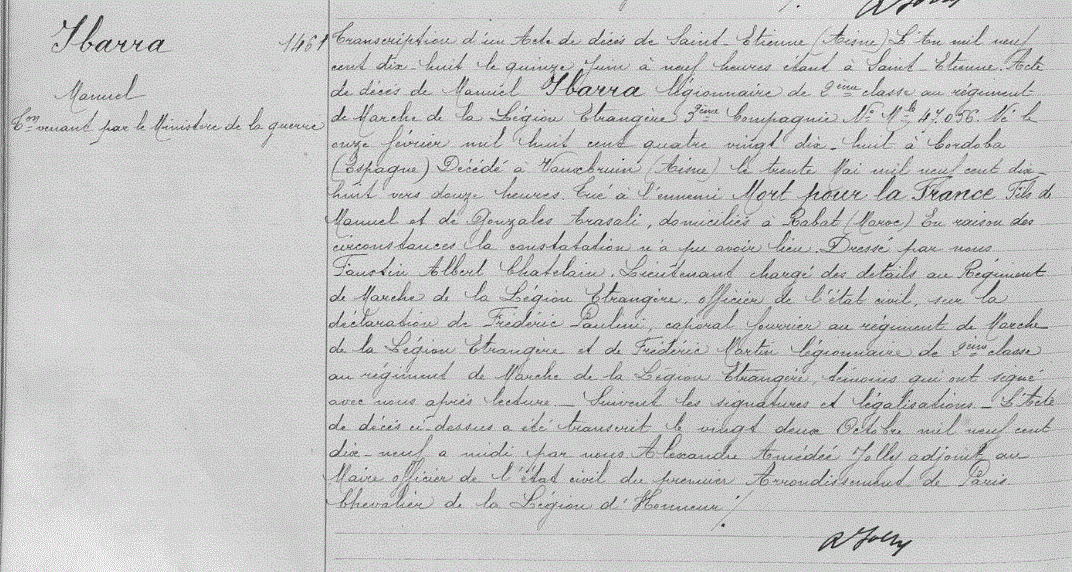 Ibarra
1461
Manuel
Con venant par le Ministère de la guerre
Transcription d'un Acte de décès de Saint-Etienne (Aisne) L'An mil neuf
cent dix-huit le quinze Juin à neuf heures étant à Saint-Etienne. Acte
de décès de Manuel Ibarra légionnaire de 2ème classe au régiment
de Marche de la Légion Etrangère 3ème Compagnie No Mle 47.056. Né le
onze février mil huit cent quatre vingt dix-huit à Cordoba
(Espagne) Décédé à Vauxbruin (Aisne) le trente Mai mil neuf cent dix
huit vers douze heures. Tué à l'ennemi Mort pour la France Fils de
Manuel et de Gonzales Arasali, domiciliés à Rabat (Maroc) En raison des
circonstances la constatation n'a pu avoir lieu. Dressé par nous
Faustin Albert Chatelain, Lieutenant chargé des détails au Régiment
de Marche de la Légion Etrangère, officier de l'état civil, sur la
déclaration de Frédéric Paulini, caporal fourrier au régiment de Marche
de la Légion Etrangère et de Frédéric Martin légionnaire de 2ème classe
au régiment de Marche de la Légion Etrangère, témoins qui ont signé
avec nous après lecture _ Suivent les signatures et légalisations _ L'Acte
de décès ci-dessus a été transcrit le vingt deux Octobre mil neuf cent
dix-neuf à midi par nous Alexandre Amédée Jolly adjoint au
Maire officier de l'état civil du premier Arrondissement de Paris
Chevalier de la Légion d'Honneur /.
A Jolly